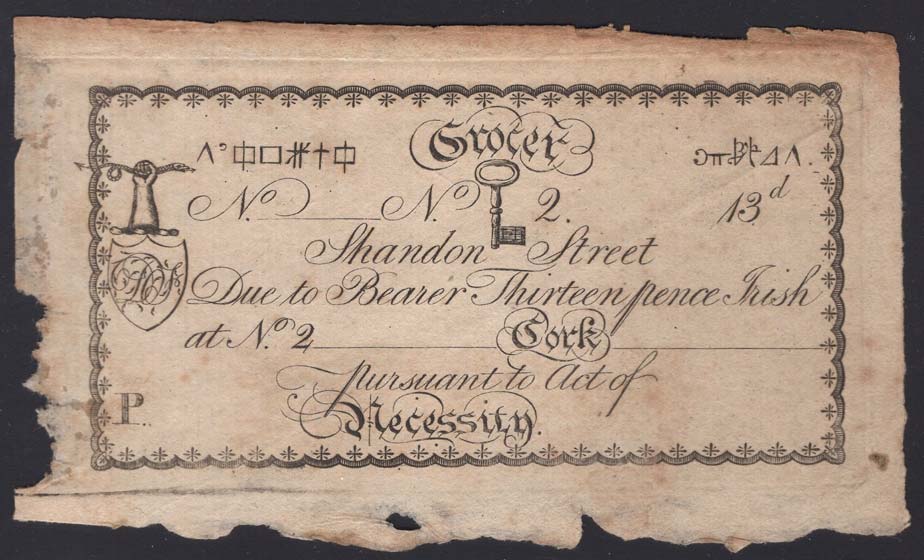 Grocer
No. No. 2. 13d
Shandon Street
Due to Bearer Thirteen pence Irish
at No. 2 Cork
pursuant to Act of
P. Necessity.